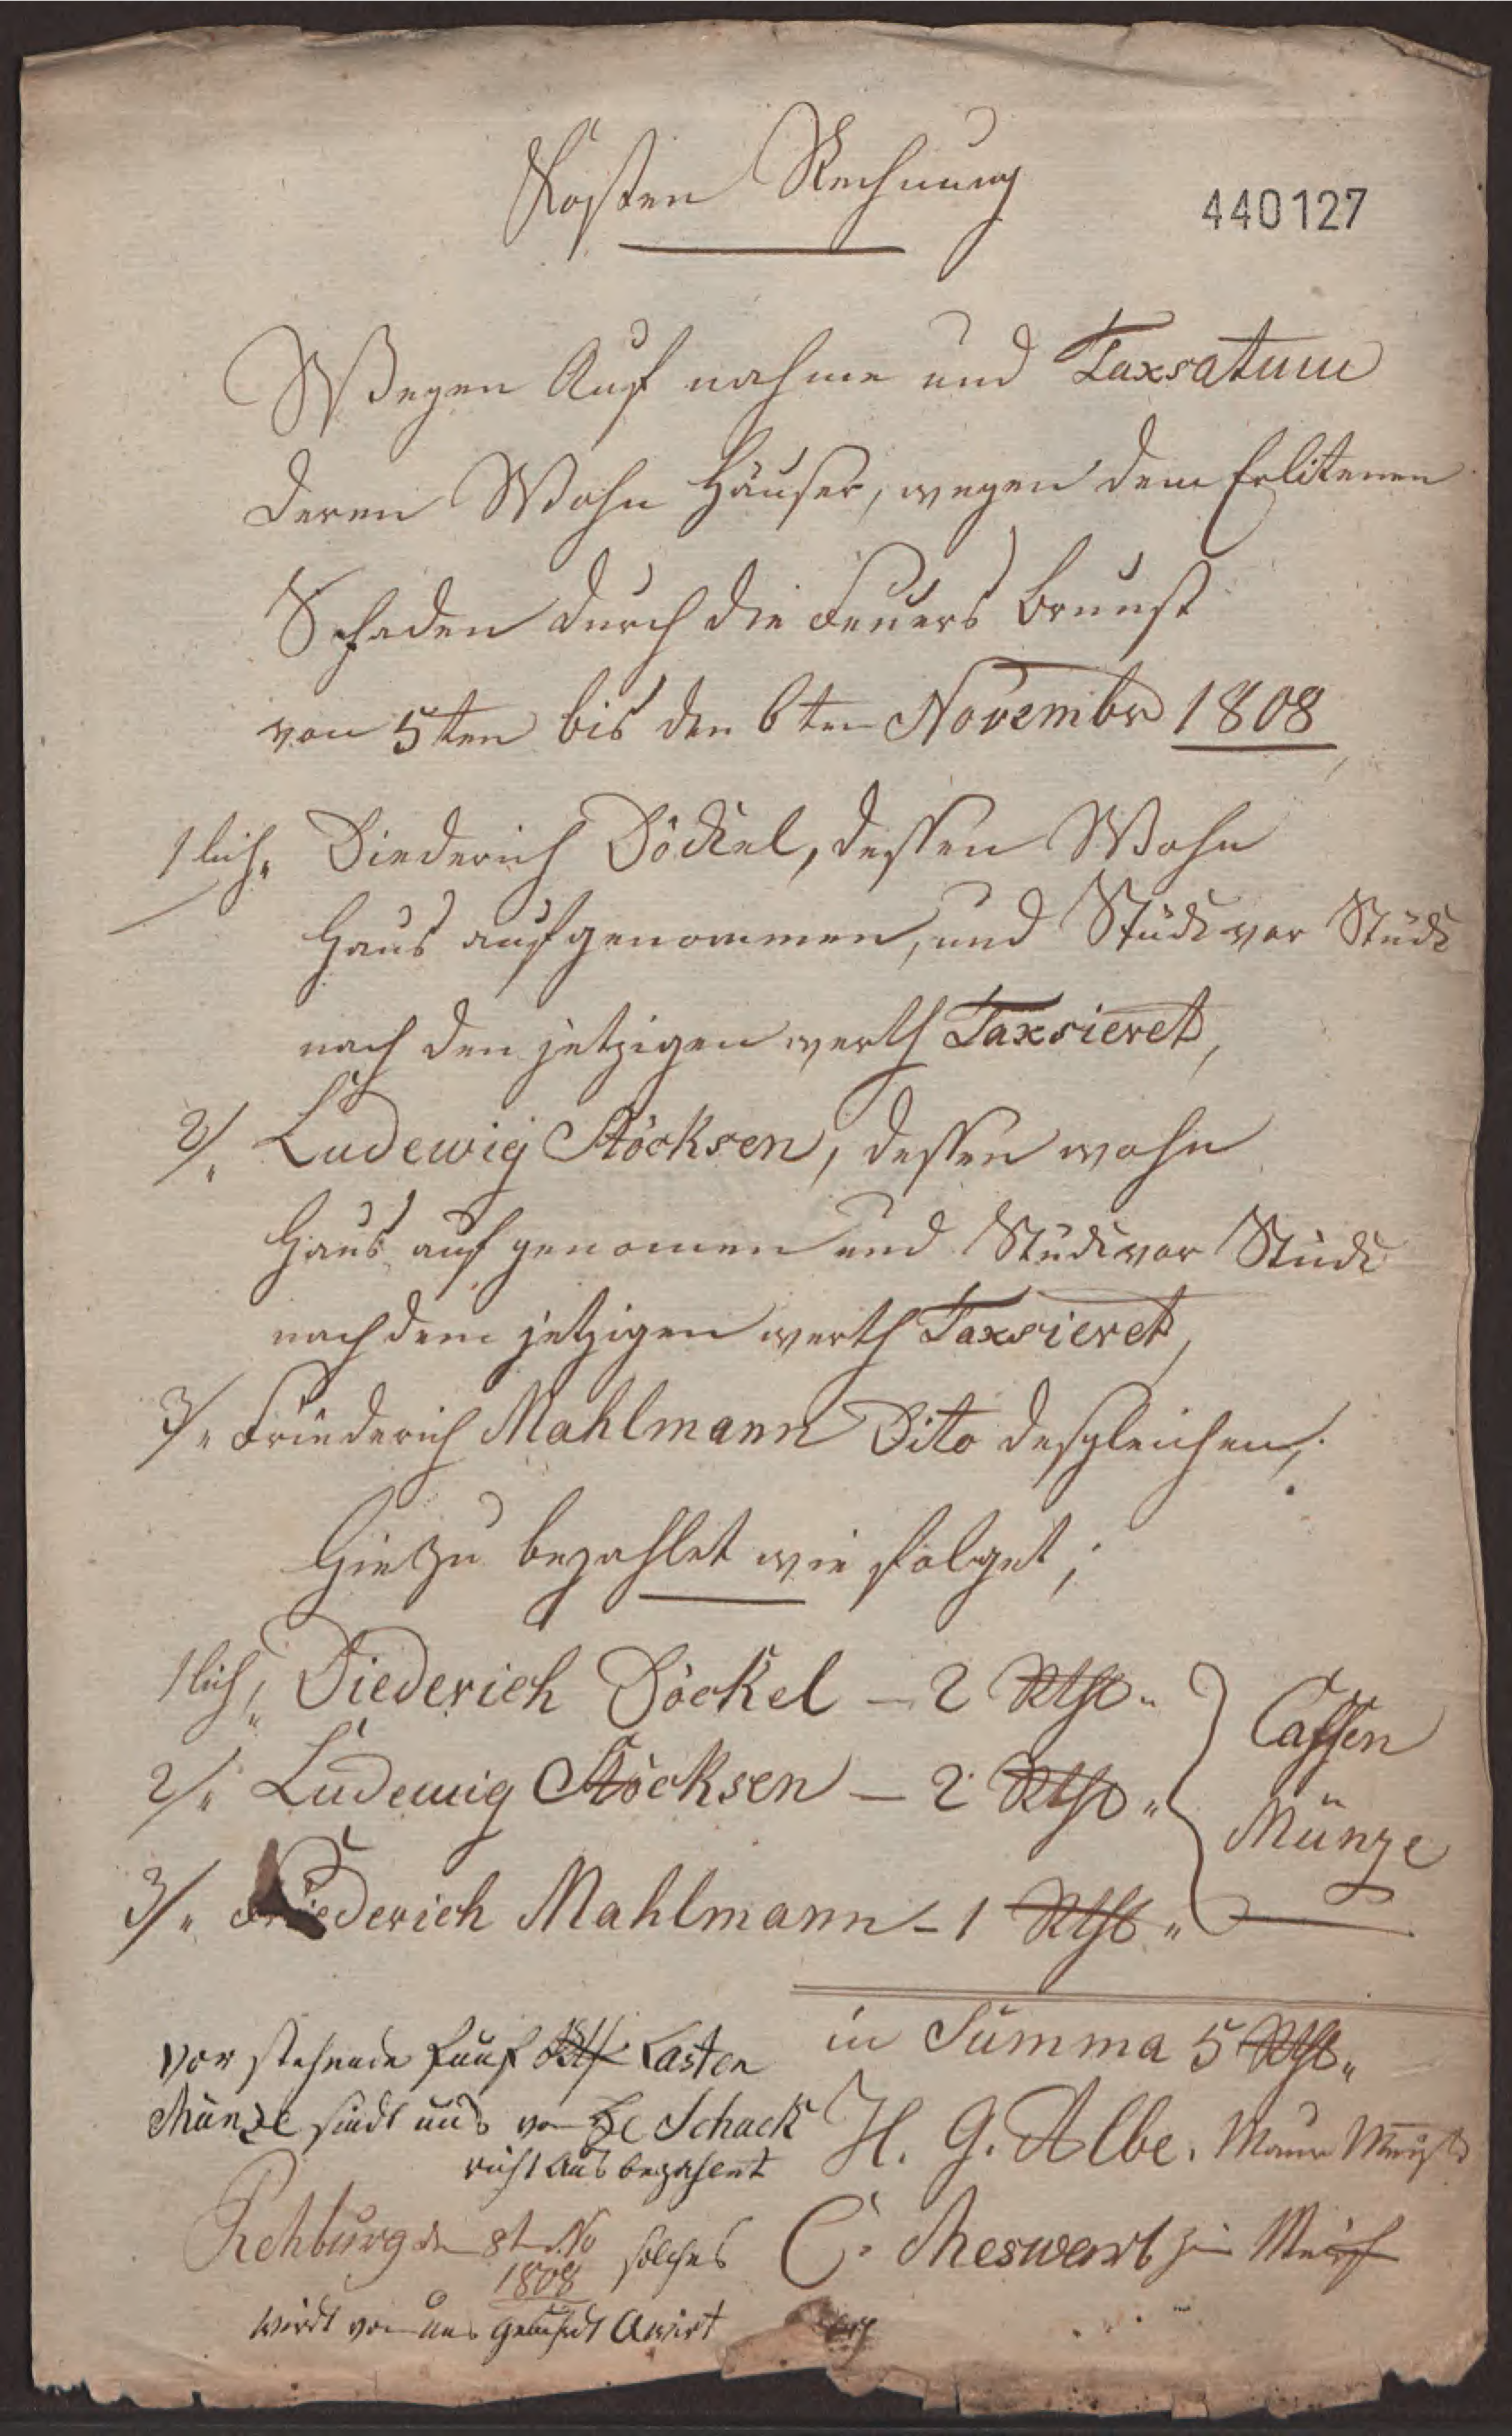 Kosten Rechnung
440127
Wegen Auf nahme und Taxsatum
deren Wohn Häuser, wegen dem Erlitenen
Schaden durch die Feuers Brunst
von 5ten bis den 6ten Novembr 1808
1lich, Diederich Döckel, dessen Wohn
Haus aufgenommen, und Stück vor Stück
nach den jetzigen werth Taxsieret,
2/. Ludewig Stöcksen, dessen wohn
Haus auf genomen und Stück vor Stück
nach dem jetzigen werth Taxsieret,
3/. Friederich Mahlmann Dito desgleichen,
Hiezu bezahlet wie folget;
1lich, Diederich Döckel – 2 Rthl.
2/. Ludewig Stöcksen – 2 Rthl.
3/. Friederich Mahlmann – 1 Rthl.
Cassen
Münze
in Summa 5 Rthl.
vor stehende fünf Rthl Casten
Münze sindt uns von Schack
richt aus bezahlt
H. G. Albe. Maur Meister
Rehburg den 8t No
1808
solches
C. Meswarb
wirdt von uns